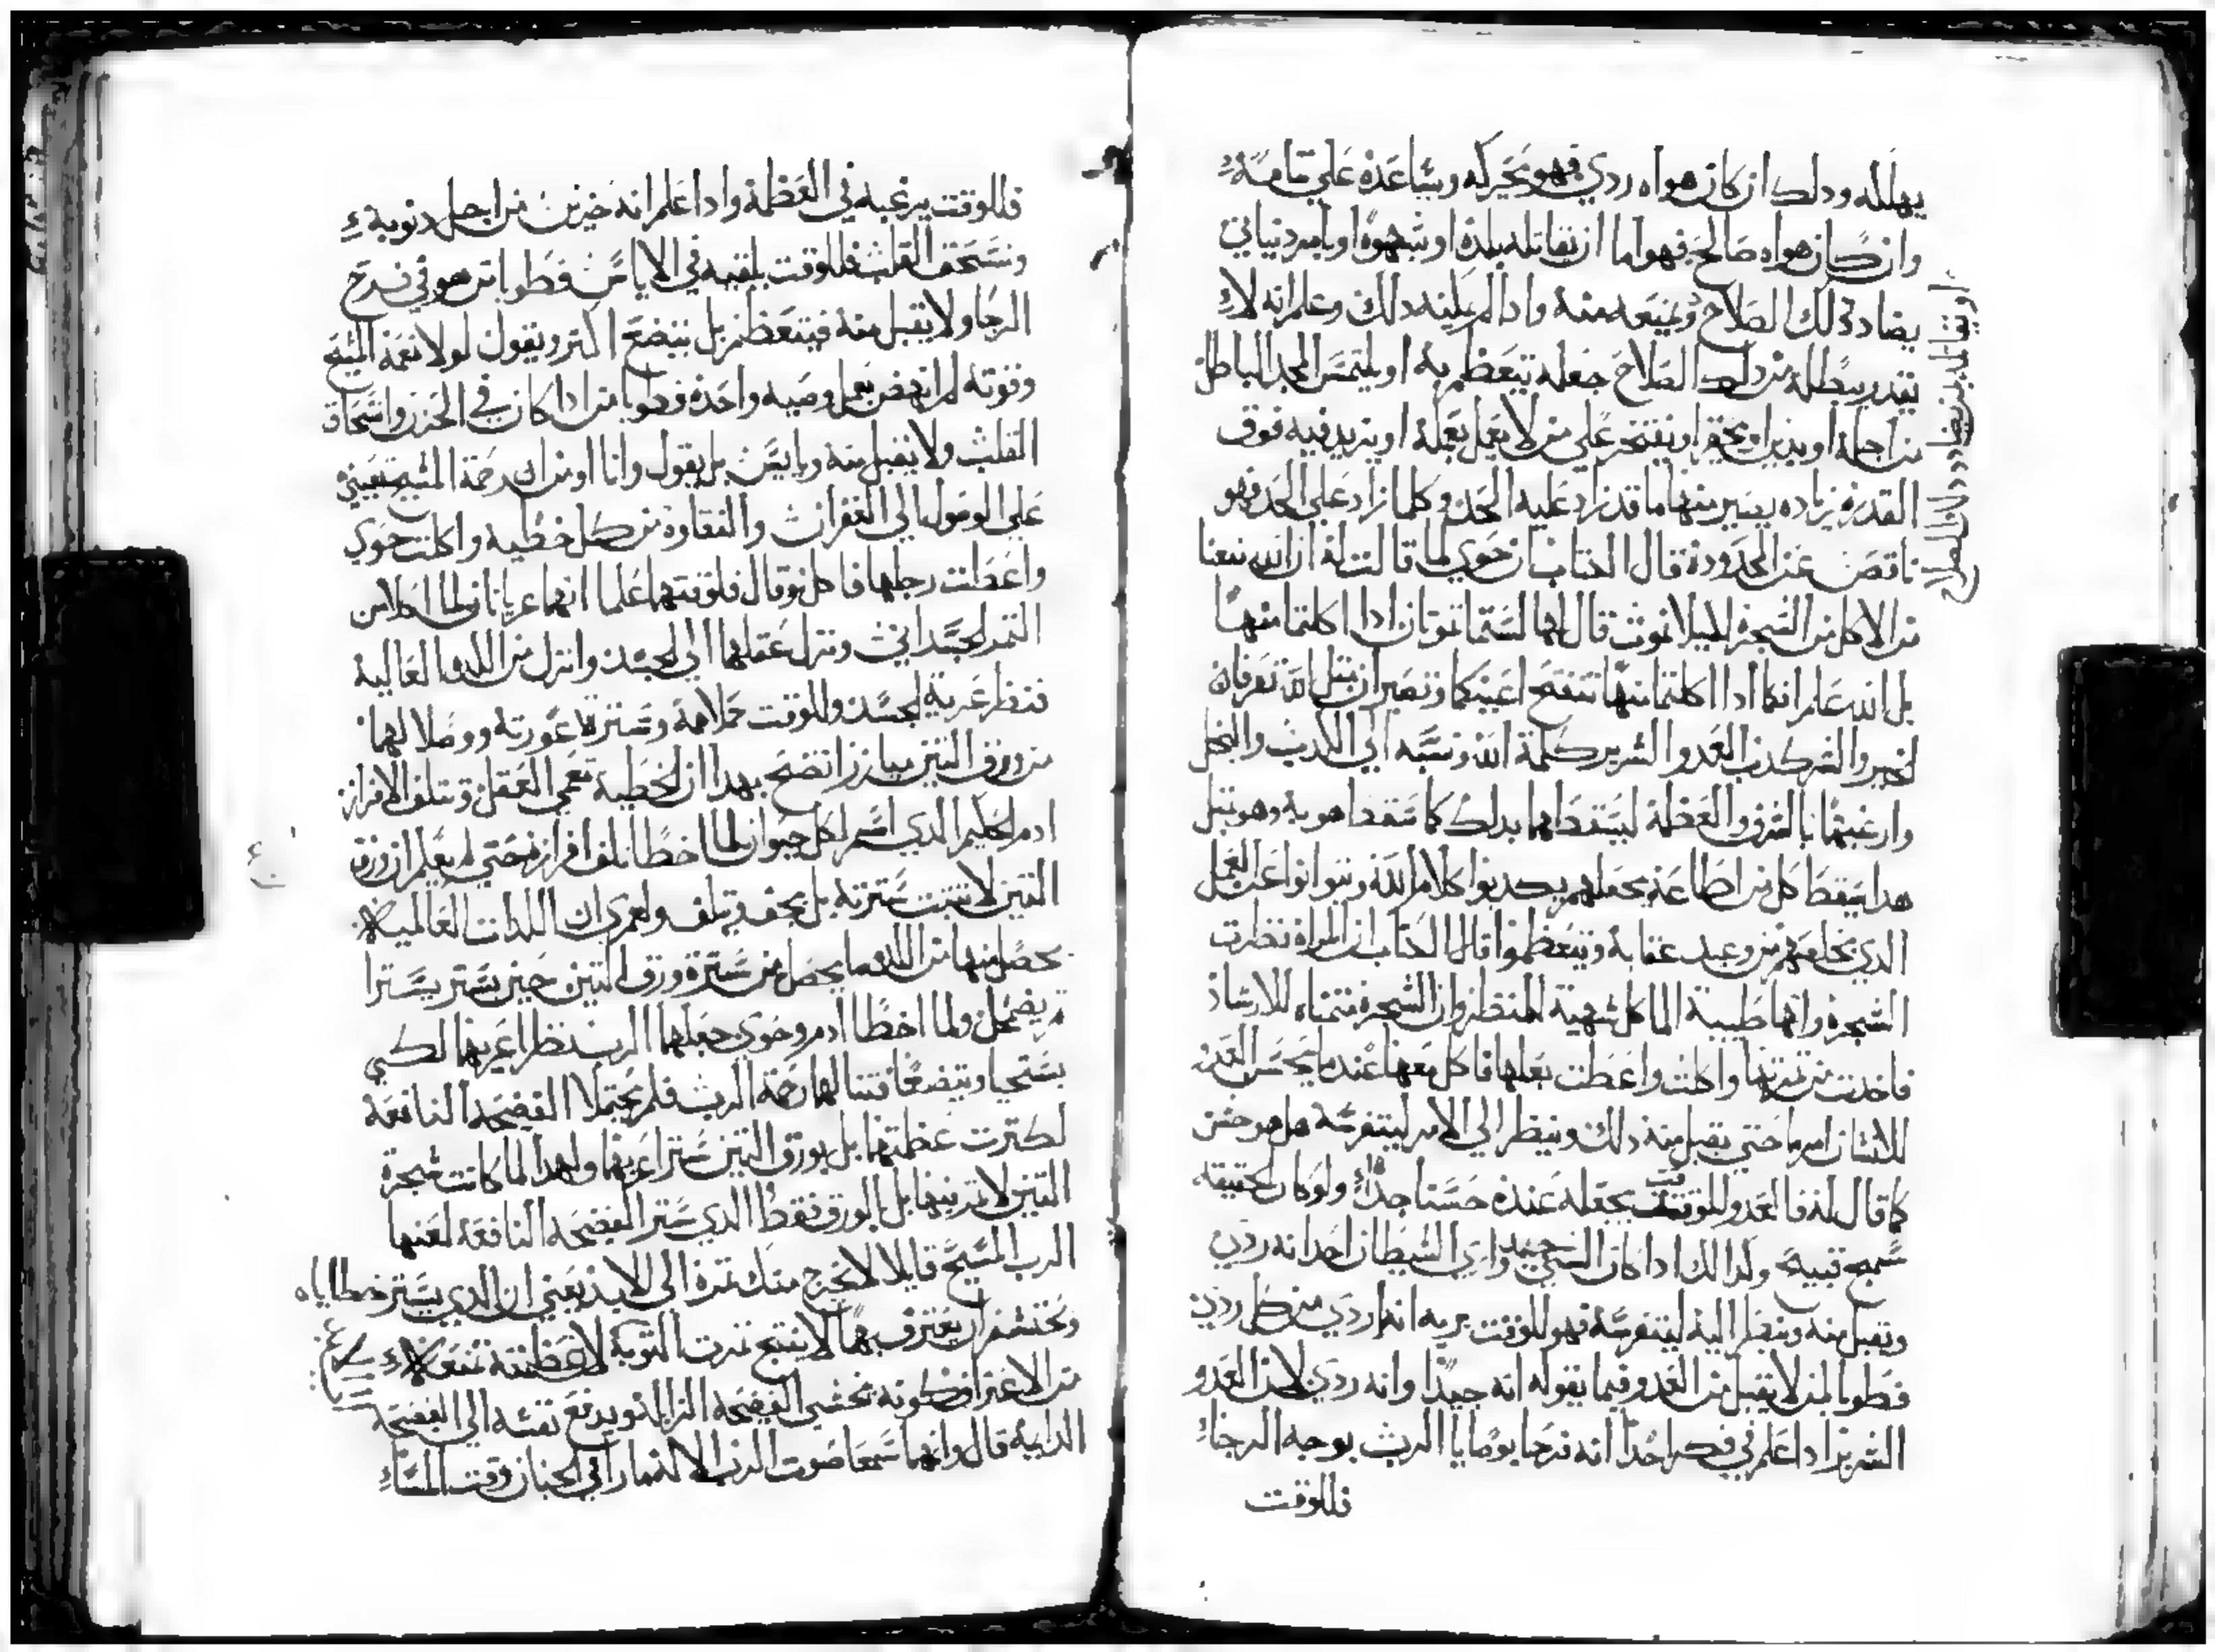 يهلكه ودلك ان كان هواه ردي فهو يحركه ويساعده علي تمامه
وان كان هواه صالح فهو اما ان يقاتله بلده او شهوه او بامر دنياني
يضادد دلك الصلاح ويمنعه منه وادا لم يمكنه دلك وعلم انه لا
يقدر يبطله من دلك الصلاح جعله يتعظم به او يلتمس المجد الباطل
من اجله او يدين او يحقر او يفتخر علي من لا يعمل بعمله او يزيد فيه فوق
القدره زياده يصير منها ما قد زاد عليه الحد وكلما زاد علي الحد فهو
ناقص عن المحدوده قال الكتاب ان حوي لما قالت له ان الله منعنا
من الاكل من الشجره ليلا نموت قال لهما لستما تموتان ادا اكلتما منها
بل الله علم انكما ادا اكلتما منها تنفتح اعينكما وتصيران مثل الله تعرفان
الخير والشر كدب العدو الشرير كلمة الله ونسبه الي الكدب والبخل
وارغبهما بالشرف والعظمة ليسقطهما بدلك كما سقط هو به وهو بمثل
هدا يسقط كل من اطاعه يجعلهم يكدبوا كلام الله ويتوانوا عن العمل
الدي يخلصهم من وعيد عقابه ويتعظموا قال الكتاب ان المراه نظرت
الشجره وانها طيبة الماكل شهية المنظر وان الشجره تتمناه للارشاد
فاخدت من تمرتها واكلت واعطت بعلها فاكل معها عند ما يحسن العدو
للانسان امرما حتي يقبل منه دلك وينظر الي الامر ليتفرسه هل هو حسن
كما قال له فالعدو للوقت يجعله عنده حسنا جدا ولو كان بالحقيقه
سمج قبيح ولدالك ادا كان الشي جيد واري الشيطان احد انه ردي
وقبل منه ونظر اليه ليتفرسه فهو للوقت يريه انه اردي من كل ردي
فطوبا لمن لا يقبل من العدو فيما يقوله انه جيدا وانه ردي لان العدو
الشرير ادا علم في فكر احدا انه فرحا بوصايا الرب بوجه الرجاء
فللوقت
او يقاتله بمن يضادد دلك الصلاح
فللوقت يرغبه في العظمة وادا علم انه حزين من اجل دنوبه
ومنسحق القلب فللوقت يلقيه في الاياس فطوبا من هو في فرح
الرجا ولا يقبل منه فيتعظم بل يتضع اكتر ويقول لولا نعمة المسيح
وقوته لم انهض بعمل وصيه واحده فطوبا من ادا كان في الحزن وانسحاق
القلب ولا يقبل منه ويايس بل يقول وانا اومن ان رحمة المسيح تعينني
علي الوصول الي الغفران والنقاوة من كل خطيه واكلت حوي
واعطت رجلها فاكل وقال فلوقتهما علما انهما عريانان لما اكلا من
التمر الجسداني ونزل عقلهما الي الجسد وانزل من اللدة العالية
فنظر عرية الجسد وللوقت عملا همة وسترة عورته ووصلا لهما
من ورق التين ميازر اتضح بهدا ان الخطية تعمي العقل وتتلف الافراز
ادم الحكيم الدي اسم لكل حيوان لما اخطا تلف افرازه حتي لم يعلم ان ورق
التين لا تتبت سترته بل يجف ويتلف ولعمري ان اللدات العالمية
يحصل منها من اللده ما يحصل من سترة ورق التين حين يستر يسترا
تم يضمحل ولما اخطا ادم وحوي جعلهما الرب ينظرا عريهما لكي
يستحيا ويتضعا فتنالهما رحمة الرب فلم يحتملا الفضيحه النافعة
لكترت عظمتهما بل بورق التين سترا عريهما ولهدا لما كانت شجرة
التين لا تمر فيها بل الورق فقط الدي ستر الفضيحه النافعة لعنها
الرب المسيح قايلا لا يخرج منك تمرة الي الابد يعني ان الدي يستر خطاياه
ويحتشم ان يعترف بها لا ينتج تمرت التوبة لا عظمته تمنعه
من الاعتراف كونه يخشي الفضيحه الزايله ويدفع نفسه الي الفضيحه
الدايمة قال وانهما سمعا صوت الرب الاله مارا في الجنان وقت المساء